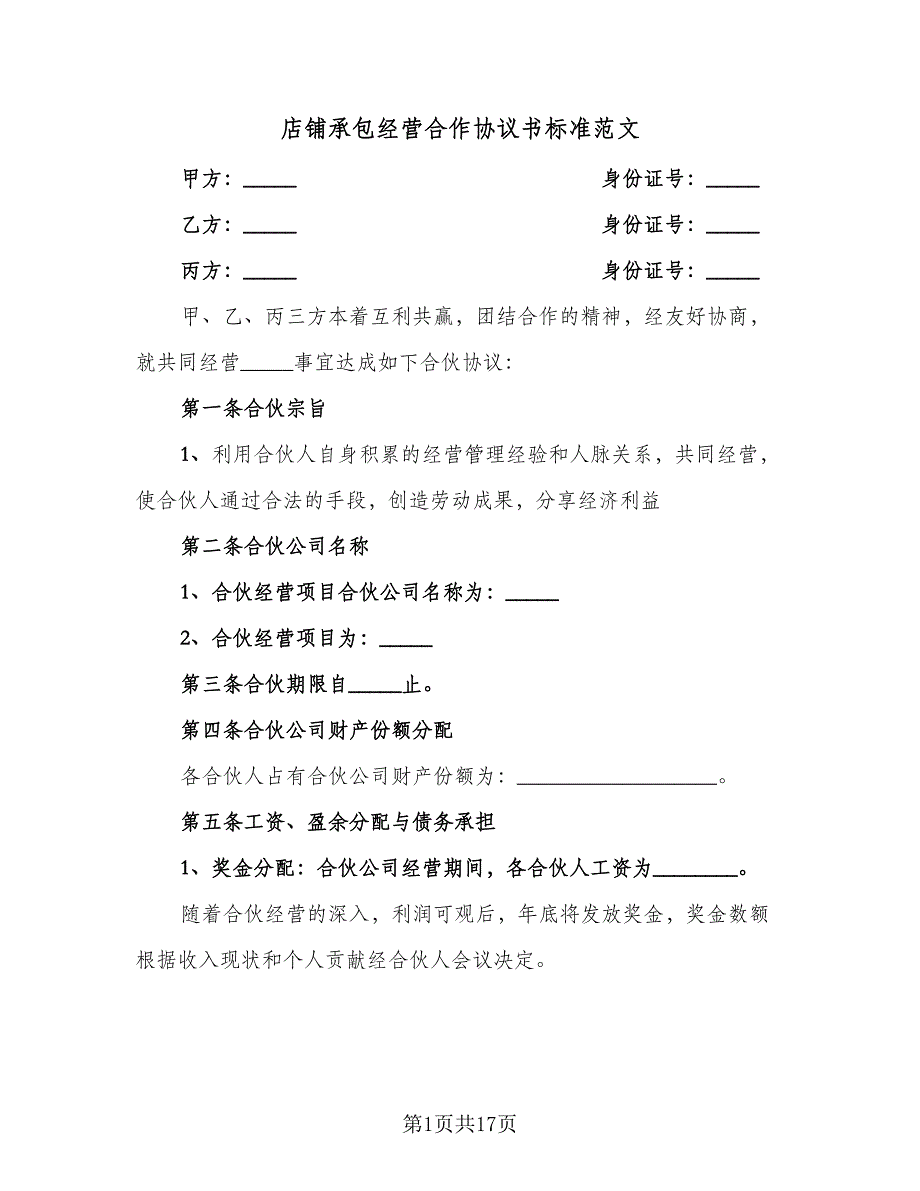 店铺承包经营合作协议书标准范文
甲方：_____ 身份证号：_____
乙方：_____ 身份证号：_____
丙方：_____ 身份证号：_____
甲、乙、丙三方本着互利共赢，团结合作的精神，经友好协商，
就共同经营_____事宜达成如下合伙协议：
第一条合伙宗旨
1、利用合伙人自身积累的经营管理经验和人脉关系，共同经营，
使合伙人通过合法的手段，创造劳动成果，分享经济利益
第二条合伙公司名称
1、合伙经营项目合伙公司名称为：_____
2、合伙经营项目为：_____
第三条合伙期限自_____止。
第四条合伙公司财产份额分配
各合伙人占有合伙公司财产份额为：___________________。
第五条工资、盈余分配与债务承担
1、奖金分配：合伙公司经营期间，各合伙人工资为________。
随着合伙经营的深入，利润可观后，年底将发放奖金，奖金数额
根据收入现状和个人贡献经合伙人会议决定。
第1页共17页